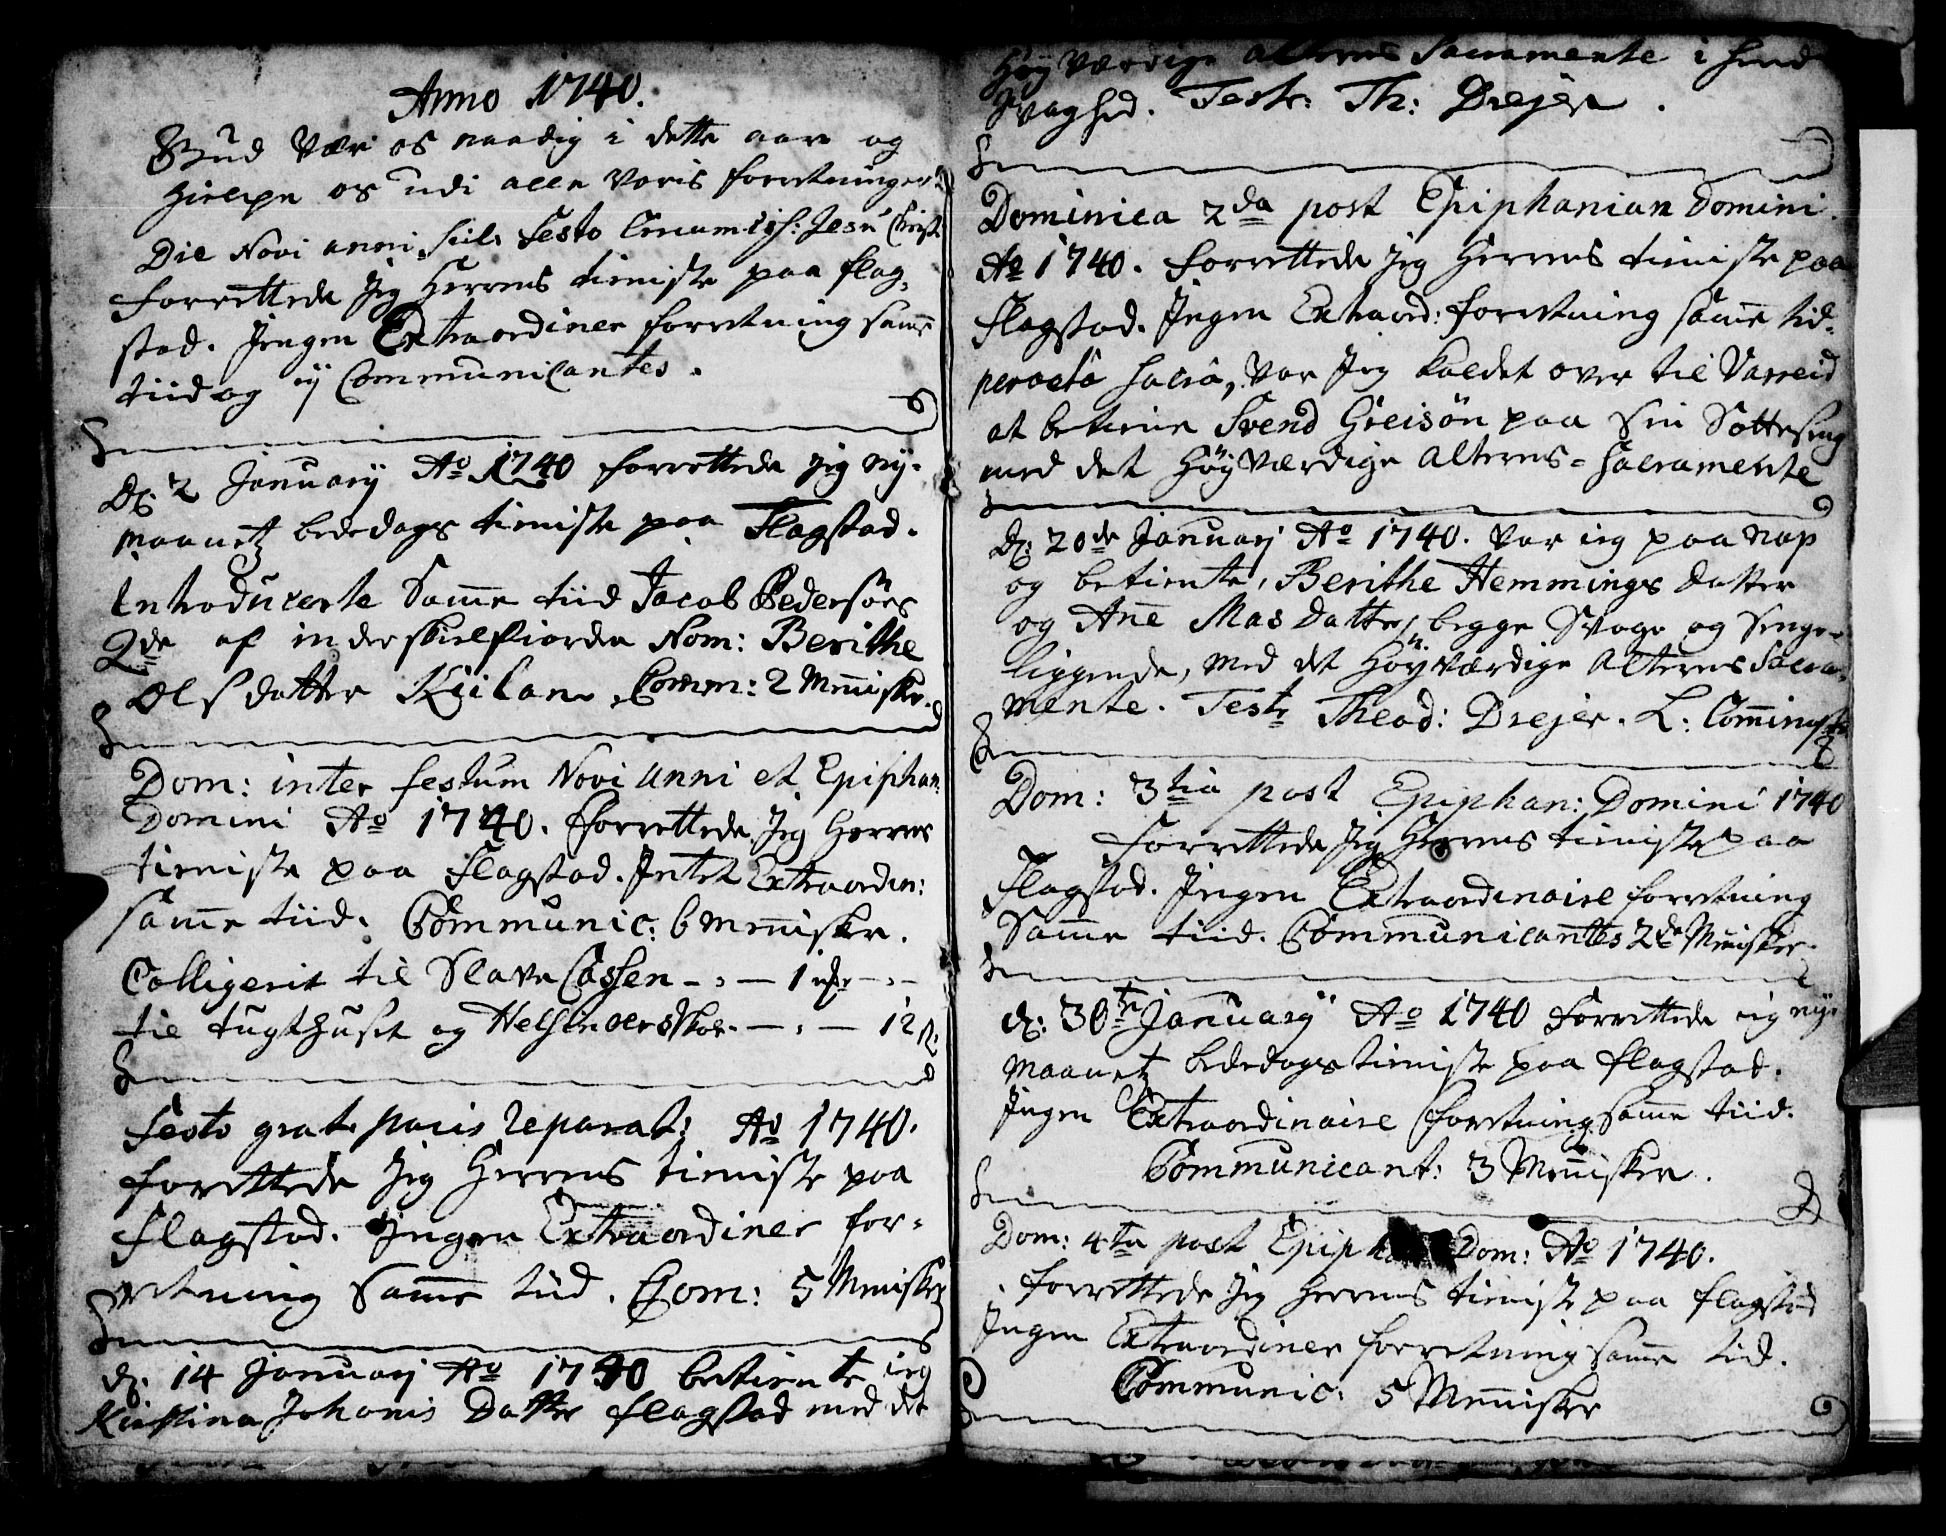 Anno 1740.
Gud vær os naadig i dette aar og
hielpe os udi alle voris forretninger
Die Novi anni, scil: Festo Circumcis: Jesu Christi
forrettede Jeg Herrens tieniste paa Flag-
stad. Jngen Extraordiner forretning samme
tiid og ij Communicantes.
D: 2 Januarij Ao 1740 forrettede jeg ny-
maanetz bededags tieniste paa Flagstad.
Introducerte Samme tiid Jacob Pedersøns
qde af inderskielfiorden Nom: Berithe
Olsdatter Kiilan. Comm: 2 Mennisker.
Dom: inter festum Novi anni et Epiphan:
Domini Ao 1740. forrettede Jeg Herrens
tieniste paa Flagstad. Jntet Extraordin:
samme tiid. Communic: 6 Mennisker.
Colligerit til Slave Cassen - : - 1 - : -
til tugthuset og Helsingers - : - 12
Festo grat: pacis reparat: Ao 1740.
forrettede Jeg Herrens tieniste paa
Flagstad. Jngen Extraordiner for-
retning Samme tiid. Com: 5 Mennisker
d: 14 Januarij Ao 1740 betiente ieg
Kirstina Johanis Datter Flagstad med det
Høyværdige alterens Sacramente i hendes
svaghed. Test: Th: Drejer.
Dominica 2da post Epiphaniam Domini.
Ao 1740. forrettede Jeg Herrens tieniste paa
Flagstad. Jngen Extraord: forretning samme tid.
peracta sacra, var Jeg kaldet over til Vareid
at betiene Svend Greisøn paa Sin Sotteseng
med det Høyværdige Alterens-Sacramente
D: 20de Januarj Ao 1740. var ieg paa Nap
og betiente, Berithe Hemmings datter
og Ane Mas Datter, begge Svage og Senge-
liggende, med det Høyværdige Alterens Sacra-
mente. Test: Theod: Drejer. L: Comminist:
Dom: 3tia post Epiphan: Domini 1740
Forrettede Jeg Herrens tieniste paa
Flagstad. Jngen Extraordinaire forretning
Samme tiid. Communicantes 2de Mennisker.
d: 30te Januarij Ao 1740 forrettede ieg nye
Maanetz bededags tieniste paa Flagstad.
Jngen Extraordinaire forretning samme tiid.
Communicant: 3 Mennisker.
Dom: 4ta post Epiph Dom: Ao 1740.
forrettede Jeg Herrens tieniste paa Flagstad
Jngen Extraordiner forretning samme tid.
Communic: 5 Mennisker